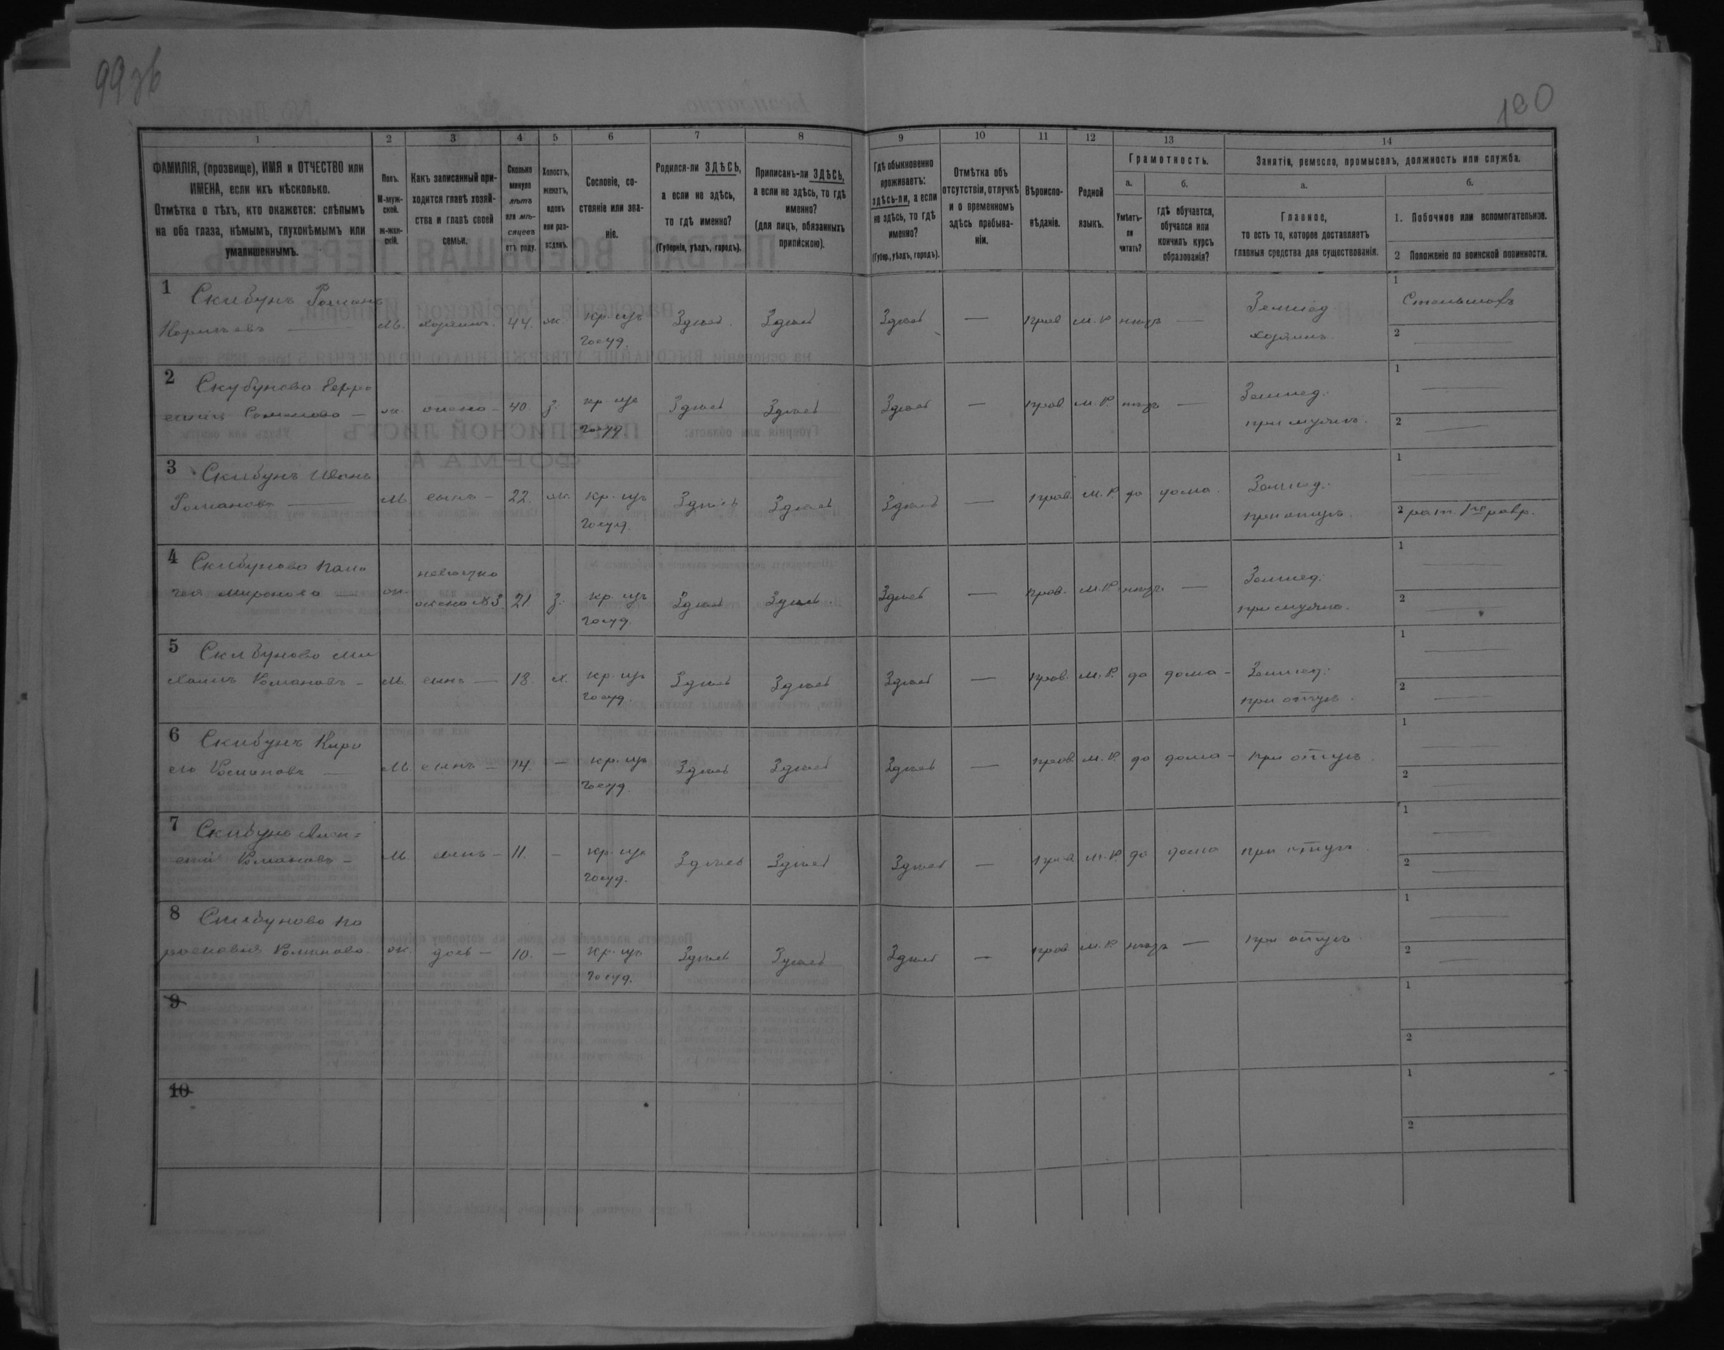 99 об
180
1 2 3 4 5 6 7 8 9 10 11 12 13 14
ФАМИЛІЯ, (прозвище), ИМЯ и ОТЧЕСТВО или
ИМЕНА, если ихъ нѣсколько.
Отмѣтка о тѣхъ, кто окажется: слѣпымъ
на оба глаза, нѣмымъ, глухонѣмымъ или
умалишеннымъ.
Полъ.
М-муж-
ской.
ж-жен-
скій.
Какъ записанный при-
ходится главѣ хозяй-
ства и главѣ своей
семьи.
Сколько
минуло
лѣтъ
или мѣ-
сяцевъ
отъ роду.
Холостъ,
женатъ,
вдовъ
или раз-
веденъ.
Сословіе, со-
стояніе или зва-
ніе.
Родился-ли ЗДѢСЬ,
а если не здѣсь,
то гдѣ именно?
(Губернія, уѣздъ, городъ).
Приписанъ-ли ЗДѢСЬ,
а если не здѣсь, то гдѣ
именно?
(для лицъ, обязанныхъ
припискою).
Гдѣ обыкновенно
проживаетъ:
здѣсь-ли, а если
не здѣсь, то гдѣ
именно?
(Губер., уѣздъ, городъ).
Отмѣтка объ
отсутствіи, отлучкѣ
и о временномъ
здѣсь пребыва-
ніи.
Вѣроиспо-
вѣданіе.
Родной
языкъ.
Грамотность.
а.
Умѣетъ-
ли
читать?
б.
гдѣ обучается,
обучался или
кончилъ курсъ
образованія?
Занятія, ремесло, промыселъ, должность или служба.
а.
Главное,
то есть то, которое доставляетъ
главныя средства для существованія.
б.
1. Побочное или вспомогательное.
2 Положеніе по воинской повинности.
1 Скибунъ Романъ
м. хозяинъ 44 ж. кр. изъ
госуд. Здѣсь Здѣсь Здѣсь — прав м. Р нѣтъ — Землед
хозяинъ 1
2 —
2 Скубунова
— ж. жена 40 з. кр. изъ
госуд Здѣсь Здѣсь Здѣсь — прав м. Р нѣтъ — Землед.
при мужѣ. 1 —
2 —
3 Скибунъ Иванъ
Романовъ — М. сынъ — 22 ж. кр. изъ
госуд. Здѣсь Здѣсь Здѣсь — прав. м. Р да дома Землед.
при отцѣ. 1 —
2 рат. 1го разр.
4 Скибунова
Миронова — ж. невѣстка
жена №3 21 з. кр. изъ
госуд. Здѣсь Здѣсь Здѣсь — прав. м. Р. нѣтъ — Землед.
при мужѣ. 1 —
2 —
5 Скибуновъ Ми
хаилъ Романовъ — М. сынъ — 18 х. кр. изъ
госуд. Здѣсь Здѣсь Здѣсь — прав. м. Р. да дома — Землед.
при отцѣ. 1 —
2 —
6 Скибунъ Кири
ло Романовъ — М сынъ — 14. — кр. изъ
госуд. Здѣсь Здѣсь Здѣсь — прав. м. Р. да дома — при отцѣ. 1 —
2 —
7 Скибунъ
Романовъ — М. сынъ — 11. — кр. изъ
госуд. Здѣсь Здѣсь Здѣсь — прав м. Р да дома при отцѣ 1 —
2 —
8 Скибунова Па
расковия Романова ж. дочь — 10. — кр. изъ
госуд. Здѣсь Здѣсь Здѣсь — прав м. Р нѣтъ — при отцѣ 1 —
2 —
9
1
2
10
1
2